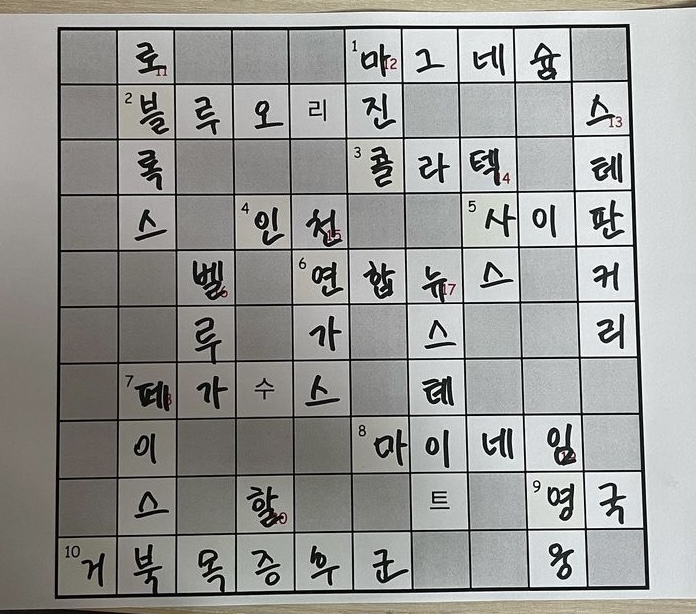 로11 1마12그네슘
2블루오리진 스13
록 3콜라텍 테
스 4인천15 5사이판
벨 6연합뉴17스 커
루 가 스 리
7페가수스 테
이 8마이네임
스 할 트 9영국
10거북목증후군 웅